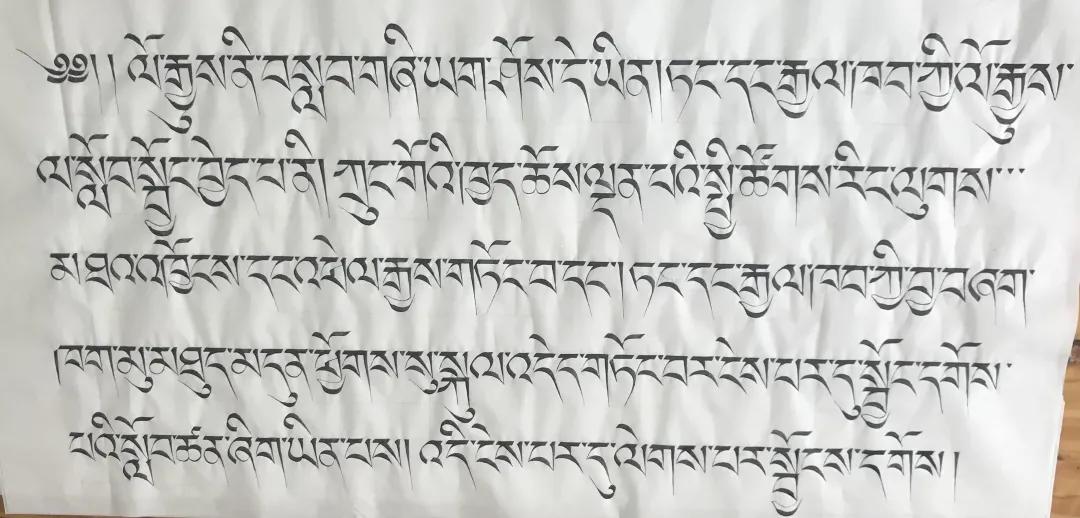 ༄༅། །ལོ་རྒྱུས་ནི་བསླབ་གཞི་ཡག་ཤོས་དེ་ཡིན། ཏང་དང་རྒྱལ་ཁབ་ཀྱི་ལོ་རྒྱུས་
ལ་སློབ་སྦྱོང་བྱེད་པ་ནི། ཀྲུང་གོའི་ཁྱད་ཆོས་ལྡན་པའི་སྤྱི་ཚོགས་རིང་ལུགས་
མཐའ་འཁྱོངས་དང་འཕེལ་རྒྱས་གཏོང་བ་དང་། ཏང་དང་རྒྱལ་ཁབ་ཀྱི་བྱ་བཞག་
ཁག་མུ་མཐུད་མདུན་ཕྱོགས་སུ་སྐུལ་འདེད་གཏོང་བར་ངེས་པར་དུ་སྦྱོང་དགོས་
པའི་སློབ་ཚན་ཞིག་ཡིན་པས། འདི་ངེས་པར་དུ་ལེགས་པར་སྦྱོངས་དགོས།